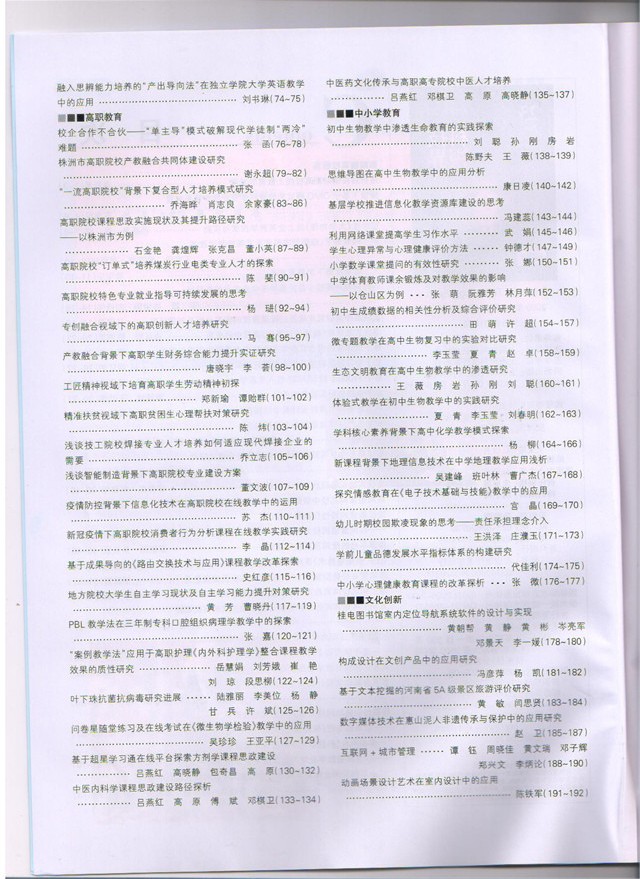 融入思辨能力培养的“产出导向法”在独立学院大学英语教学
中的应用 ………… 刘书琳(74~75)
■■■高职教育
校企合作不合伙——“单主导”模式破解现代学徒制“两冷”
难题 ………… 张　函(76~78)
株洲市高职院校产教融合共同体建设研究
………… 谢永超(79~82)
“一流高职院校”背景下复合型人才培养模式研究
………… 乔海晔　肖志良　余家豪(83~86)
高职院校课程思政实施现状及其提升路径研究
——以株洲市为例
………… 石金艳　龚煌辉　张克昌　董小英(87~89)
高职院校“订单式”培养煤炭行业电类专业人才的探索
………… 陈　斐(90~91)
高职院校特色专业就业指导可持续发展的思考
………… 杨　琎(92~94)
专创融合视域下的高职创新人才培养研究
………… 马　骞(95~97)
产教融合背景下高职学生财务综合能力提升实证研究
………… 唐晓宇　李　荟(98~100)
工匠精神视域下培育高职学生劳动精神初探
………… 郑新瑜　谭贻群(101~102)
精准扶贫视域下高职贫困生心理帮扶对策研究
………… 陈　炜(103~104)
浅谈技工院校焊接专业人才培养如何适应现代焊接企业的
需要 ………… 乔立志(105~106)
浅谈智能制造背景下高职院校专业建设方案
………… 董文波(107~109)
疫情防控背景下信息化技术在高职院校在线教学中的运用
………… 苏　杰(110~111)
新冠疫情下高职院校消费者行为分析课程在线教学实践研究
………… 李　晶(112~114)
基于成果导向的《路由交换技术与应用》课程教学改革探索
………… 史红彦(115~116)
地方院校大学生自主学习现状及自主学习能力提升对策研究
………… 黄　芳　曹晓丹(117~119)
PBL教学法在三年制专科口腔组织病理学教学中的探索
………… 张　嘉(120~121)
“案例教学法”应用于高职护理《内外科护理学》整合课程教学
效果的质性研究 ………… 岳慧娟　刘芳娥　崔　艳
刘　琼　段思柳(122~124)
叶下珠抗菌抗病毒研究进展 …… 陆雅丽　李美位　杨　静
甘　兵　许　斌(125~126)
问卷星随堂练习及在线考试在《微生物学检验》教学中的应用
………… 吴珍珍　王亚平(127~129)
基于超星学习通在线平台探索方剂学课程思政建设
………… 吕燕红　高晓静　包奇昌　高　原(130~132)
中医内科学课程思政建设路径探析
………… 吕燕红　高　原　傅　斌　邓棋卫(133~134)
中医药文化传承与高职高专院校中医人才培养
………… 吕燕红　邓棋卫　高　原　高晓静(135~137)
■■■中小学教育
初中生物教学中渗透生命教育的实践探索
………… 刘　聪　孙　刚　房　岩
陈野夫　王　薇(138~139)
思维导图在高中生物教学中的应用分析
………… 康日凌(140~142)
基层学校推进信息化教学资源库建设的思考
………… 冯建蕊(143~144)
利用网络课堂提高学生习作水平 ……… 武　娟(145~146)
学生心理异常与心理健康评价方法 …… 钟德才(147~149)
小学数学课堂提问的有效性研究 ……… 张　娜(150~151)
中学体育教师课余锻炼及对教学效果的影响
——以仓山区为例 … 张　萌　阮雅芳　林月萍(152~153)
初中生成绩数据的相关性分析及综合评价研究
………… 田　萌　许　超(154~157)
微专题教学在高中生物复习中的实验对比研究
………… 李玉莹　夏　青　赵　卓(158~159)
生态文明教育在高中生物教学中的渗透研究
………… 王　薇　房　岩　孙　刚　刘　聪(160~161)
体验式教学在初中生物教学中的实践研究
………… 夏　青　李玉莹　刘春明(162~163)
学科核心素养背景下高中化学教学模式探索
………… 杨　柳(164~166)
新课程背景下地理信息技术在中学地理教学应用浅析
………… 吴建峰　班叶林　曹广杰(167~168)
探究情感教育在《电子技术基础与技能》教学中的应用
………… 宫　晶(169~170)
幼儿时期校园欺凌现象的思考——责任承担理念介入
………… 王洪泽　庄濮玉(171~173)
学前儿童品德发展水平指标体系的构建研究
………… 代佳利(174~175)
中小学心理健康教育课程的改革探析 … 张　微(176~177)
■■■文化创新
桂电图书馆室内定位导航系统软件的设计与实现
………… 黄朝帮　黄　静　黄　彬　岑亮军
邓景天　李一媛(178~180)
构成设计在文创产品中的应用研究
………… 冯彦萍　杨　凯(181~182)
基于文本挖掘的河南省5A级景区旅游评价研究
………… 黄　敏　闫思贤(183~184)
数字媒体技术在惠山泥人非遗传承与保护中的应用研究
………… 赵　卫(185~187)
互联网+城市管理 …… 谭　钰　周晓佳　黄文瑞　邓子辉
郑兴文　李炳论(188~190)
动画场景设计艺术在室内设计中的应用
………… 陈轶军(191~192)